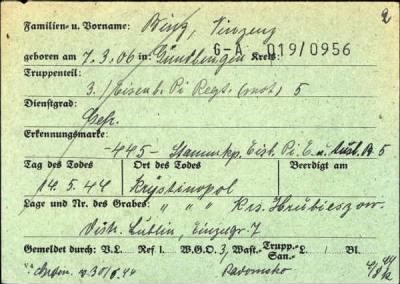 2
Familien- u. Vorname: Binz, Vinzenz
geboren am 7.3.06 in Gündlingen Kreis: G-A 019/0956
Truppenteil:
3./Eisenb. Pi Regt. (mot) 5
Dienstgrad:
Gefr.
Erkennungsmarke:
-445- Stammkp. Eisb. Pi. E. u. Ausb. 5
Tag des Todes Ort des Todes Beerdigt am
14.5.44 Krystinopol
Lage und Nr. des Grabes: " " " Krs. Hrubieszow.
Distr. Lublin, Einzelgr. 7
Gemeldet durch: V.L. Ref I. W.G.O. 3, Wast-Trupp.-San.- L./ Bl.
v. 30/6.44 Radomsko